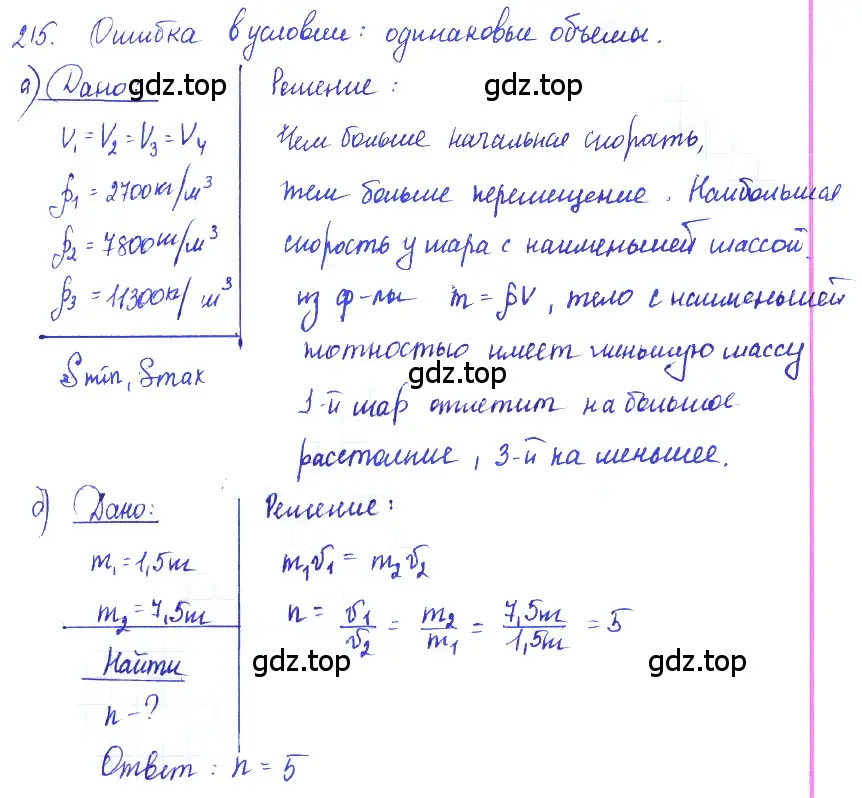 215. Ошибка в условии: одинаковые объемы.
а) Дано:
gdz.top
Решение:
gdz.top
V₁ = V₂ = V₃ = V₄
ρ₁ = 2700 кг/м³
ρ₂ = 7800 кг/м³
ρ₃ = 11300 кг/м³
Smin, Smax
Чем больше начальная скорость,
тем больше перемещение. Наибольшая
скорость у шара с наименьшей массой.
из ф-лы m = ρV, тело с наименьшей
плотностью имеет меньшую массу
gdz.top
1-й шар отлетит на большое
расстояние, 3-й на меньшее.
б) Дано:
m₁ = 1,5 т
m₂ = 7,5 т
Найти
n - ?
Решение:
m₁v₁ = m₂v₂
n = v₁/v₂ = m₂/m₁ = 7,5т/1,5т = 5
gdz.top
gdz.top
Ответ: n = 5